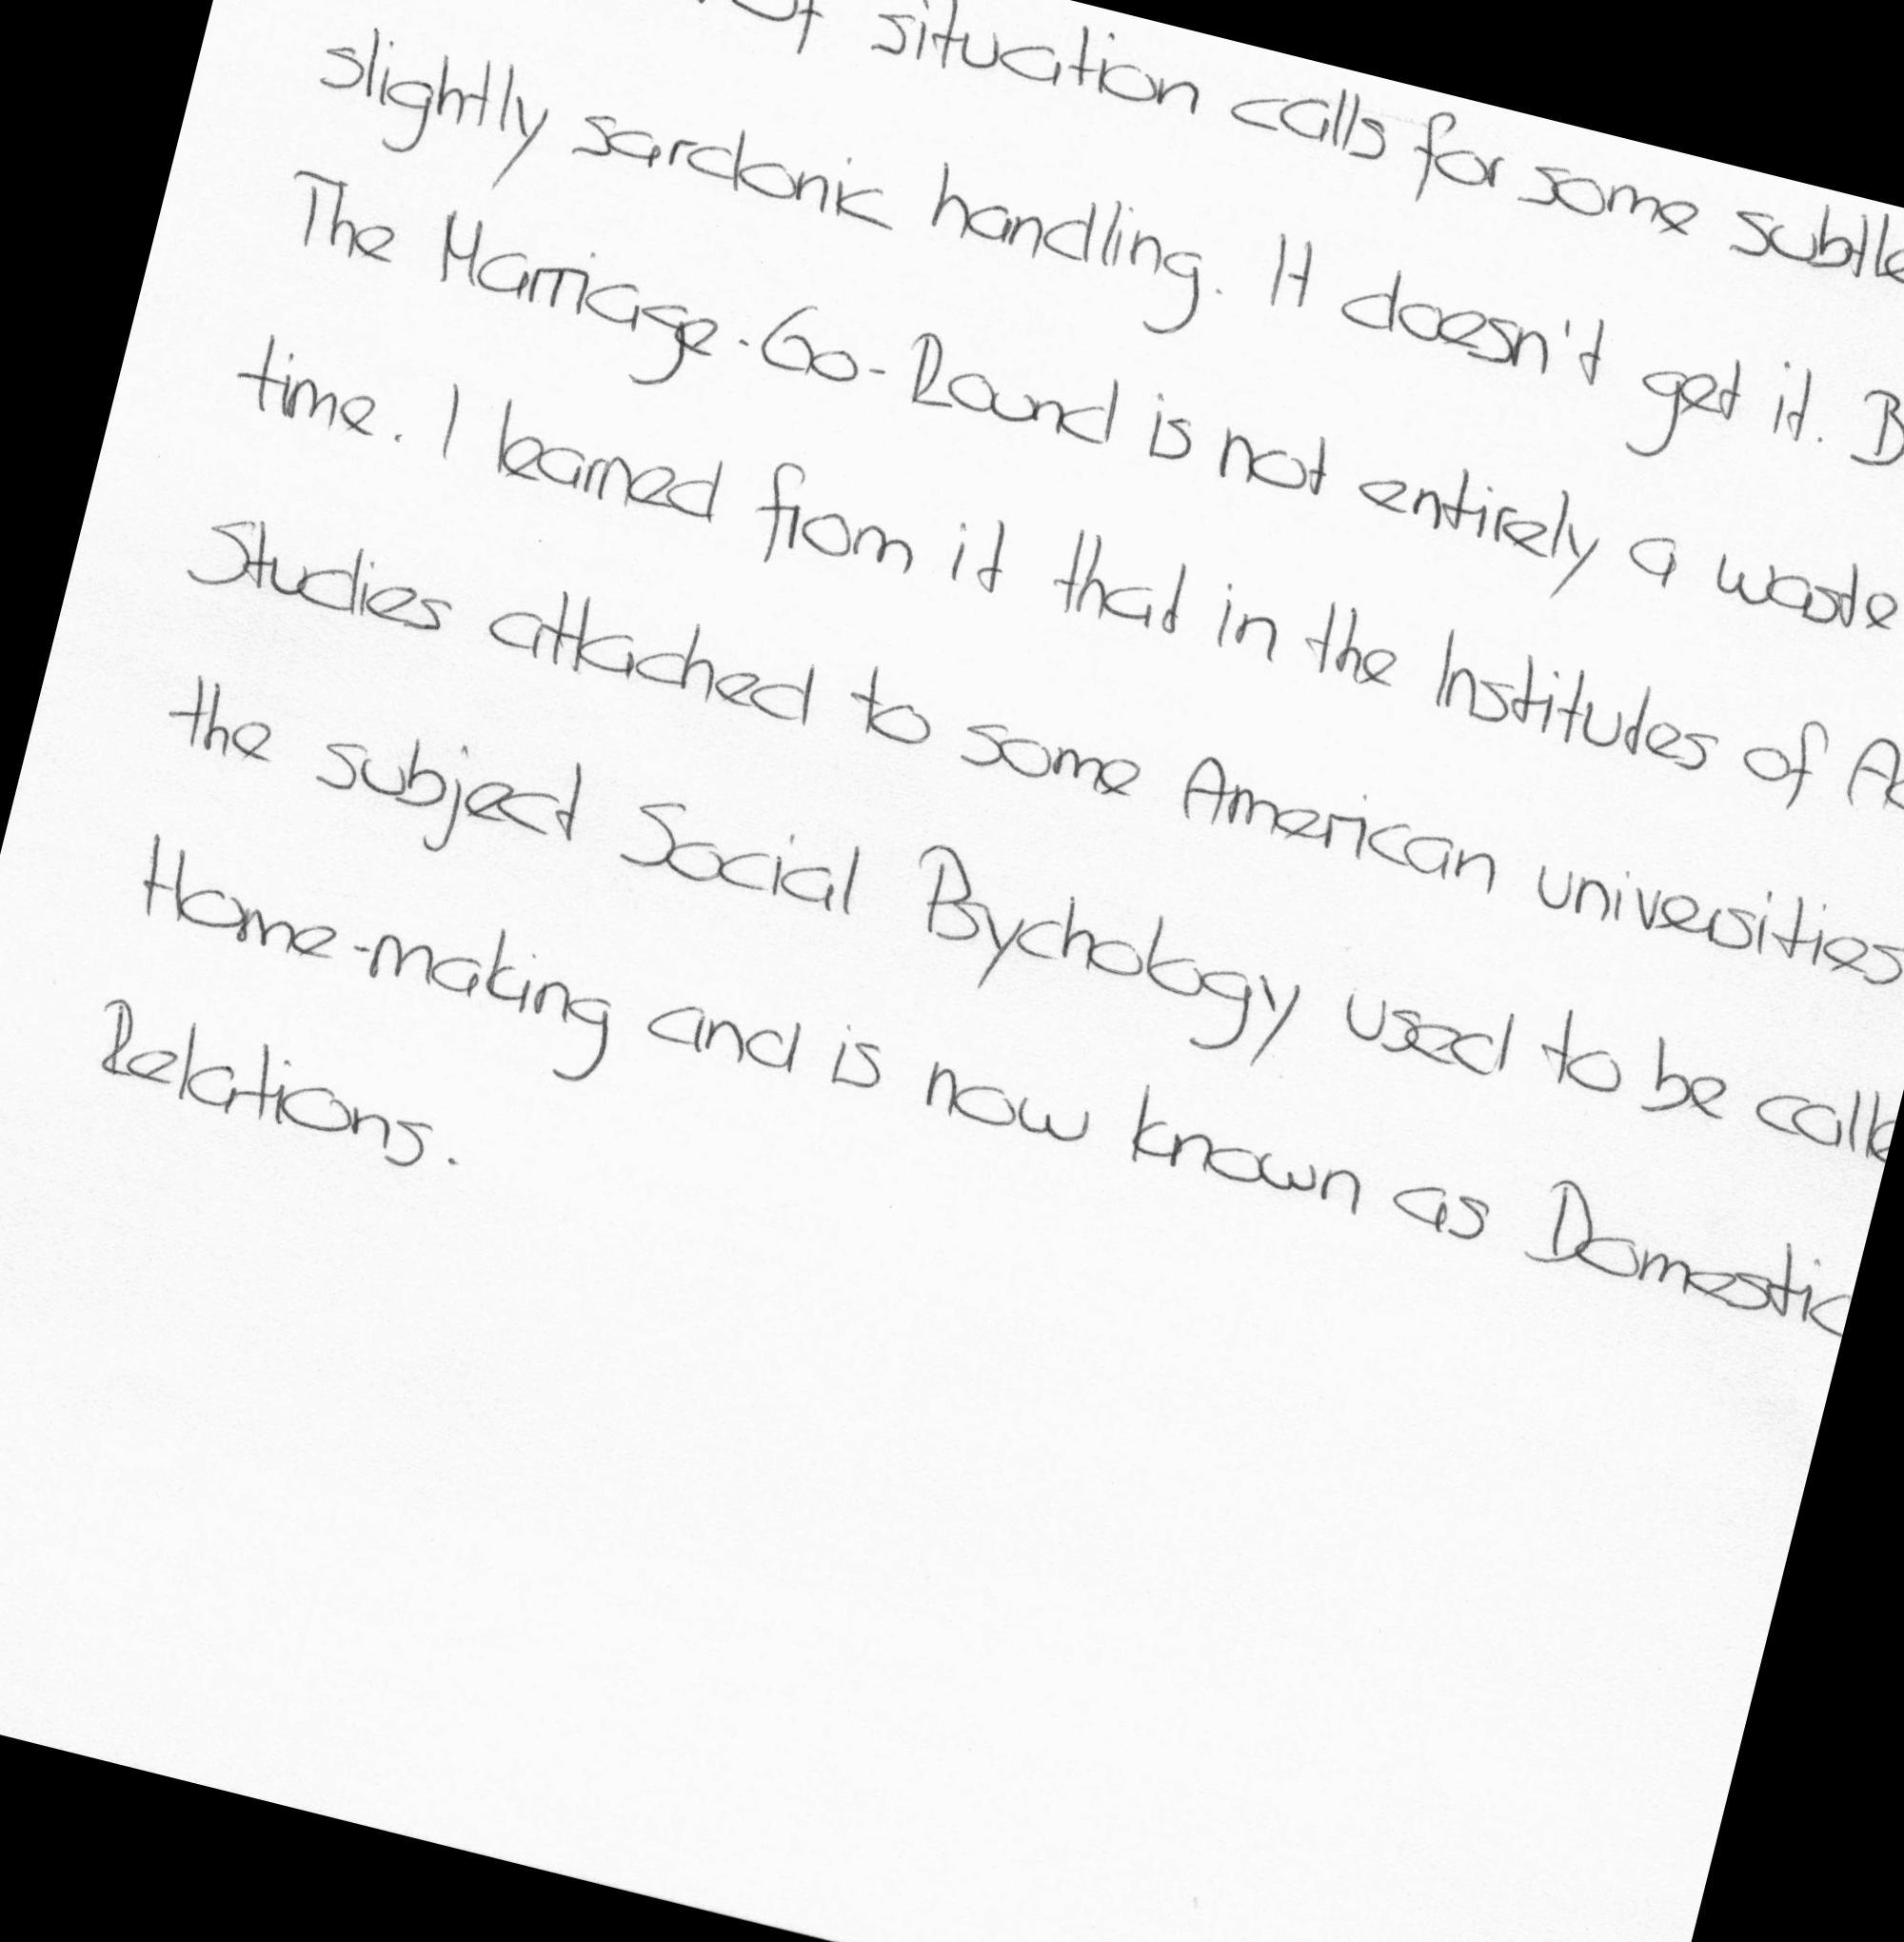 of situation calls for some subtle
slightly sardonic handling. It doesn't get it. B
The Marriage-Go-Round is not entirely a waste
time. I learned from it that in the Institutes of
Studies attached to some American universities
the subject Social Psychology used to be calle
Home-making and is now known as Domestic
Relations.